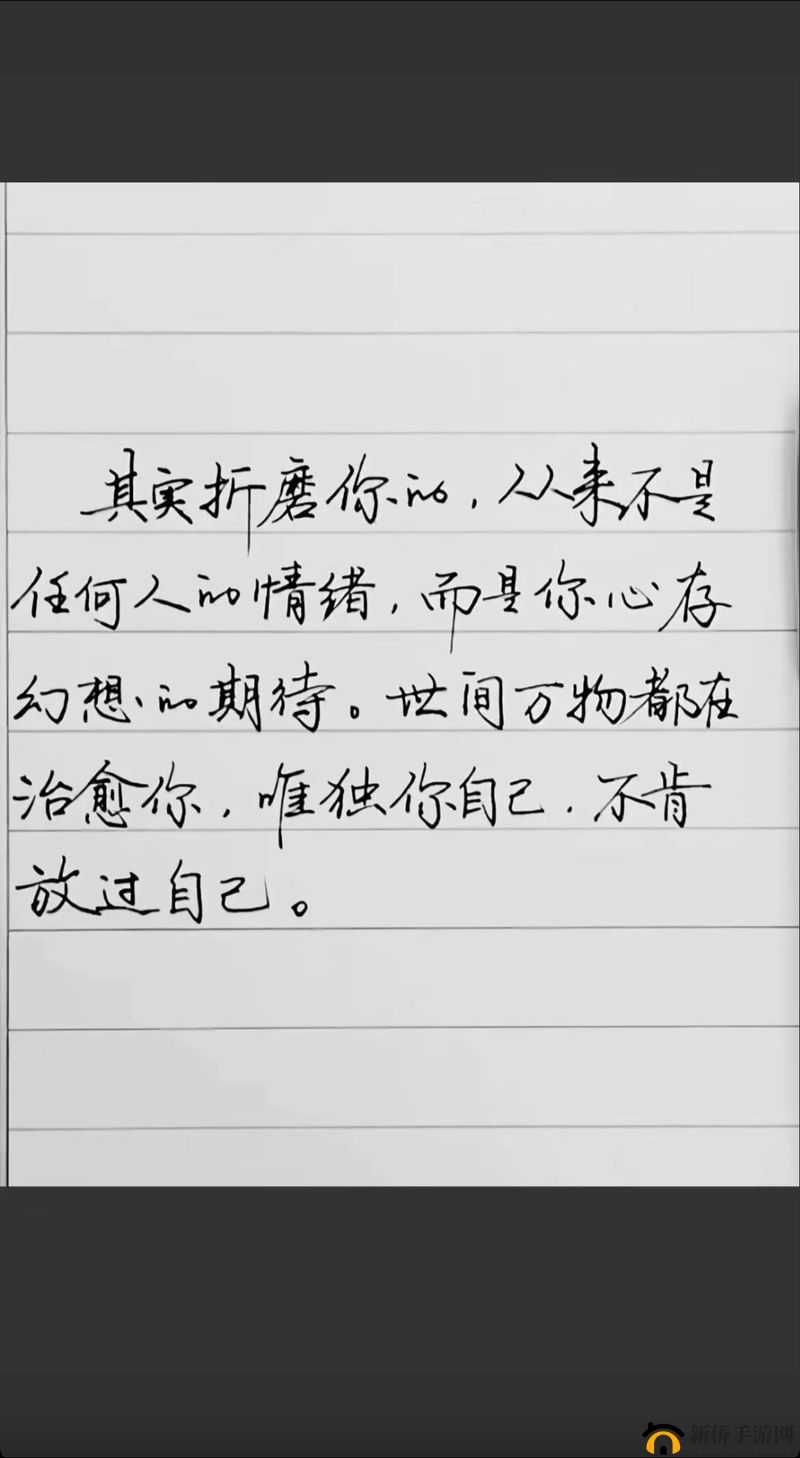 其实折磨你的，从来不是
任何人的情绪，而是你心存
幻想的期待。世间万物都在
治愈你，唯独你自己，不肯
放过自己。
新侨手游网